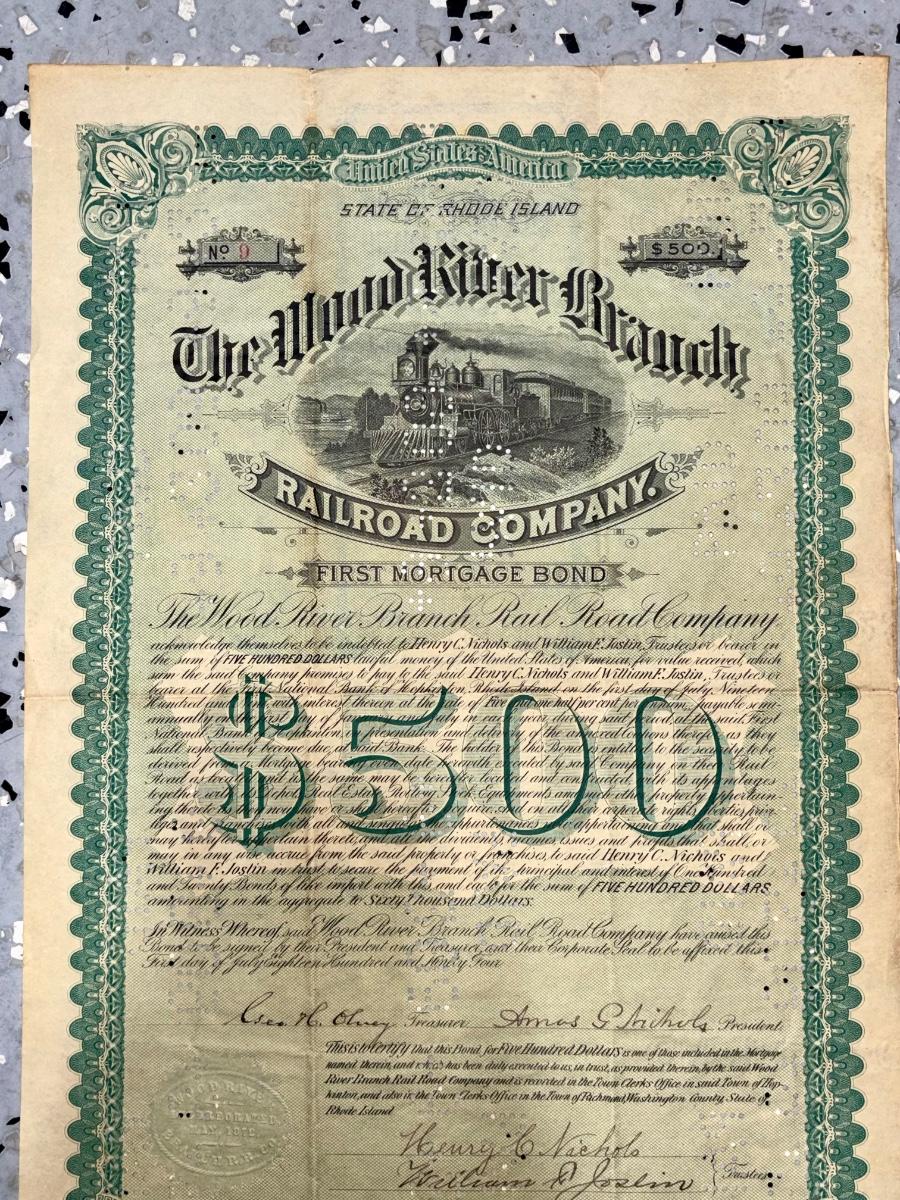 United States of America
STATE OF RHODE ISLAND
No 9
$500.
The Wood River Branch
RAILROAD COMPANY.
FIRST MORTGAGE BOND
The Wood River Branch Rail Road Company
acknowledge themselves to be indebted to Henry C. Nichols and William F. Joslin, Trustees or bearer in
the sum of FIVE HUNDRED DOLLARS lawful money of the United States of America, for value received, which
sum the said Company promises to pay to the said Henry C. Nichols and William F. Joslin, Trustees or
bearer at the National Bank of Hopkinton, Rhode Island on the first day of July, Nineteen
Hundred and interest thereon at the rate of Five and one half per cent per annum, payable semi-
annually on the day of July in each year, during said period, at the said First
National Bank of Hopkinton, on presentation and delivery of the annexed coupons therefor as they
shall respectively become due, at said Bank. The holder of this Bond is entitled to the security to be
derived from a Mortgage bearing even date herewith executed by said Company on their Rail
Road as located and as the same may be hereafter located and constructed, with its appendages
together with Real Estate, Rolling Stock Equipments and such other property appertain-
ing thereto
may hereafter pertain thereto, and the incomes, issues and profits that shall, or
may in any wise accrue from the said property or franchises, to said Henry C. Nichols and
William F. Joslin in trust, to secure the payment of the principal and interest of One Hundred
and Twenty Bonds of like import with this and each for the sum of FIVE HUNDRED DOLLARS
amounting in the aggregate to Sixty Thousand Dollars.
$500
In Witness Whereof, said Wood River Branch Rail Road Company have caused this
Bond to be signed by their President and Treasurer and their Corporate Seal to be affixed this
First day of July Eighteen Hundred and Ninety Four
Geo. H. Olney Treasurer Amos G Nichols President
This is to certify that this Bond for Five Hundred Dollars is one of those included in the Mortgage
named therein, and which has been duly executed to us, in trust, as provided therein, by the said Wood
River Branch Rail Road Company and is recorded in the Town Clerks Office in said Town of Hop-
kinton, and also in the Town Clerks Office in the Town of Richmond, Washington County State of
Rhode Island
WOOD RIVER
INCORPORATED
MAY, 1872.
BRANCH R.R. CO.
Henry C Nichols
William F Joslin
Trustees